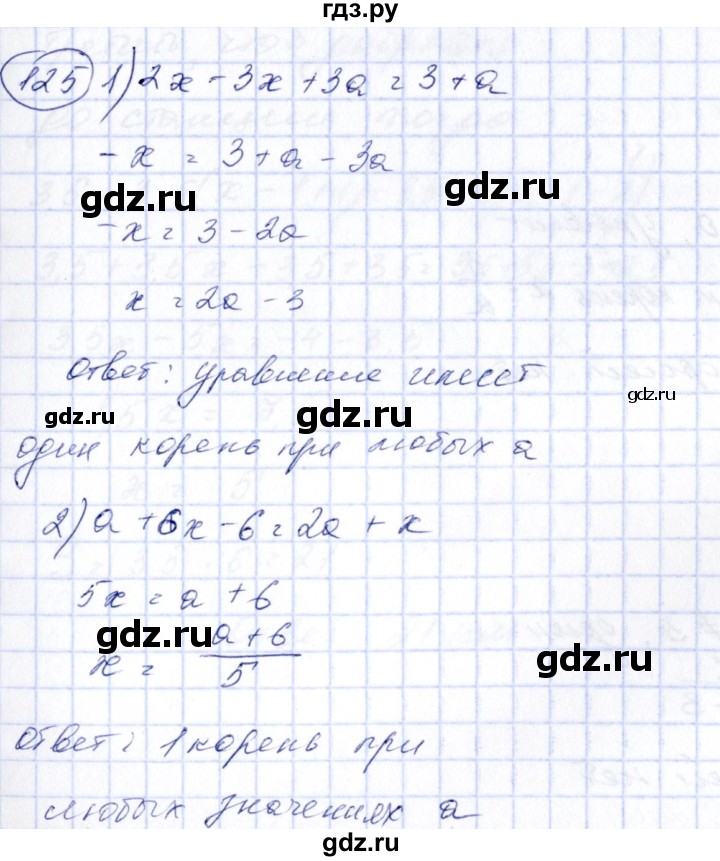 гдз.ру
125 1) 2x - 3x + 3a = 3 + a
-x = 3 + a - 3a
gdz.ru gdz.ru
-x = 3 - 2a
x = 2a - 3
Ответ: уравнение имеет
gdz.ru gdz.ru gdz.ru
один корень при любых a
2) a + 6x - 6 = 2a + x
5x = a + 6
gdz.ru gdz.ru
x = \frac{a + 6}{5}
Ответ: 1 корень при
gdz.ru gdz.ru
любых значениях a
gdz.ru